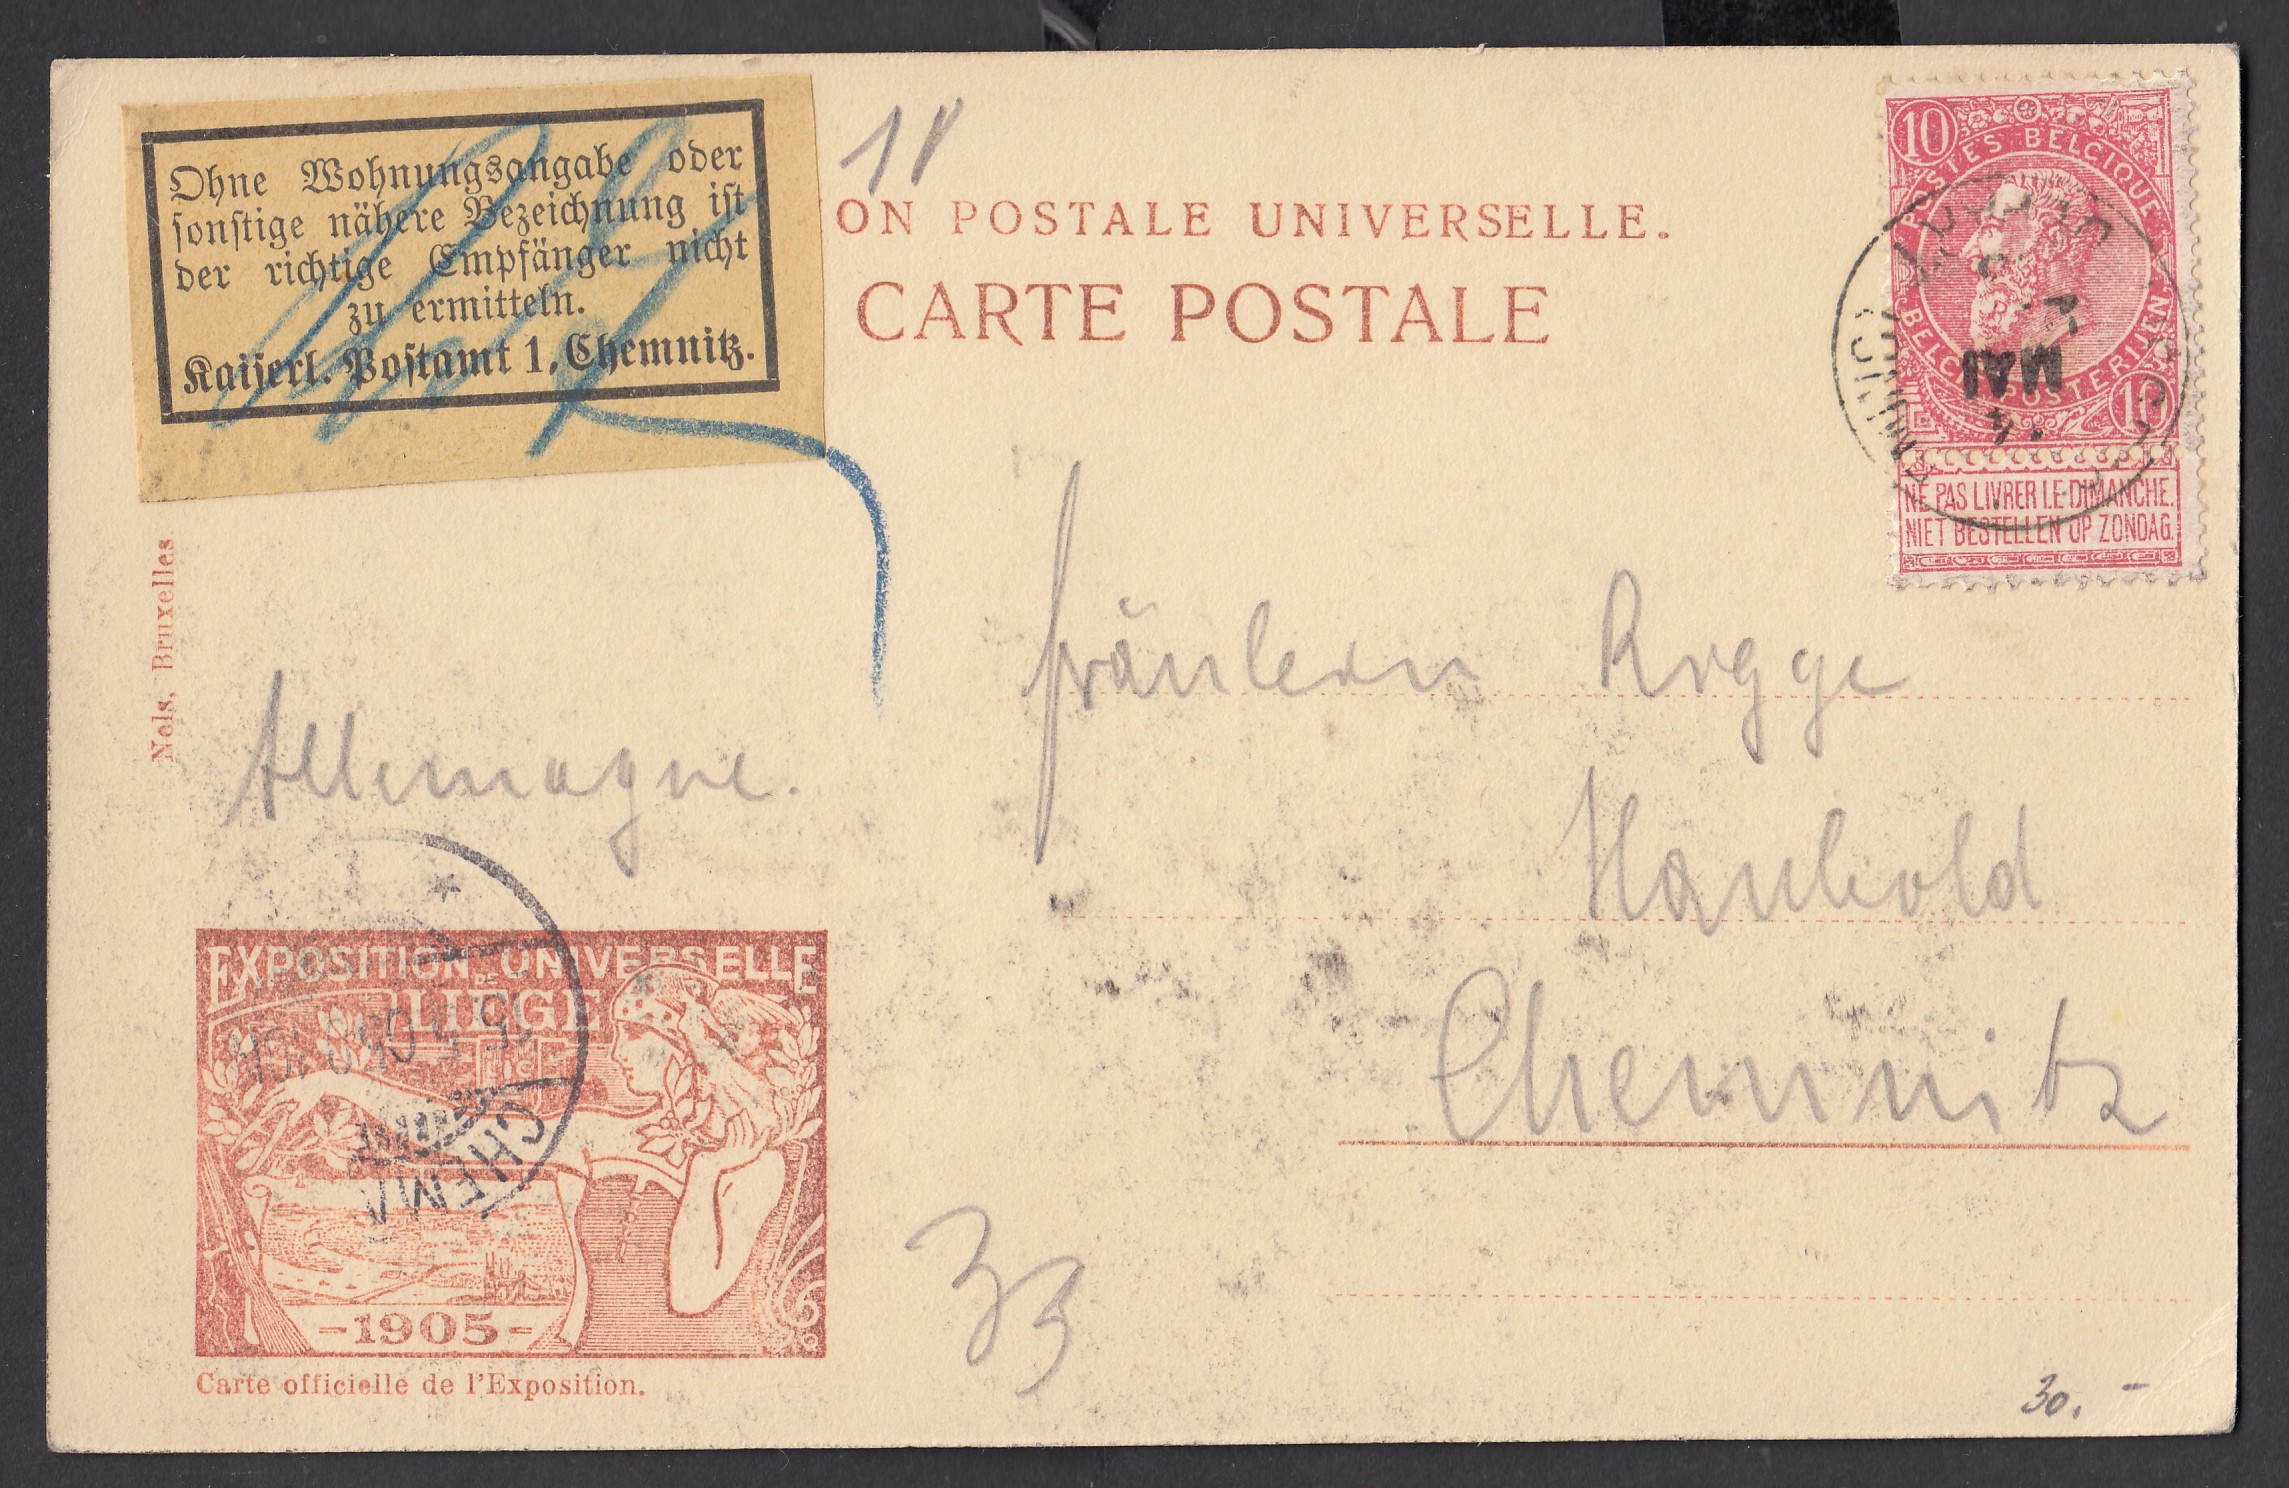 Ohne Wohnungsangabe oder
sonstige nähere Bezeichnung ist
der richtige Empfänger nicht
zu ermitteln.
Kaiserl. Postamt 1, Chemnitz.
18
ON POSTALE UNIVERSELLE.
CARTE POSTALE
10
POSTES BELGIQUE
BELGIË POSTERIJEN
10
MAI
4
NE PAS LIVRER LE DIMANCHE.
NIET BESTELLEN OP ZONDAG.
Nels, Bruxelles
Fräulein
Allemagne.
Haubold
Chemnitz
EXPOSITION UNIVERSELLE
DE
LIÈGE
1905
CHEM
Carte officielle de l'Exposition.
33
30.-